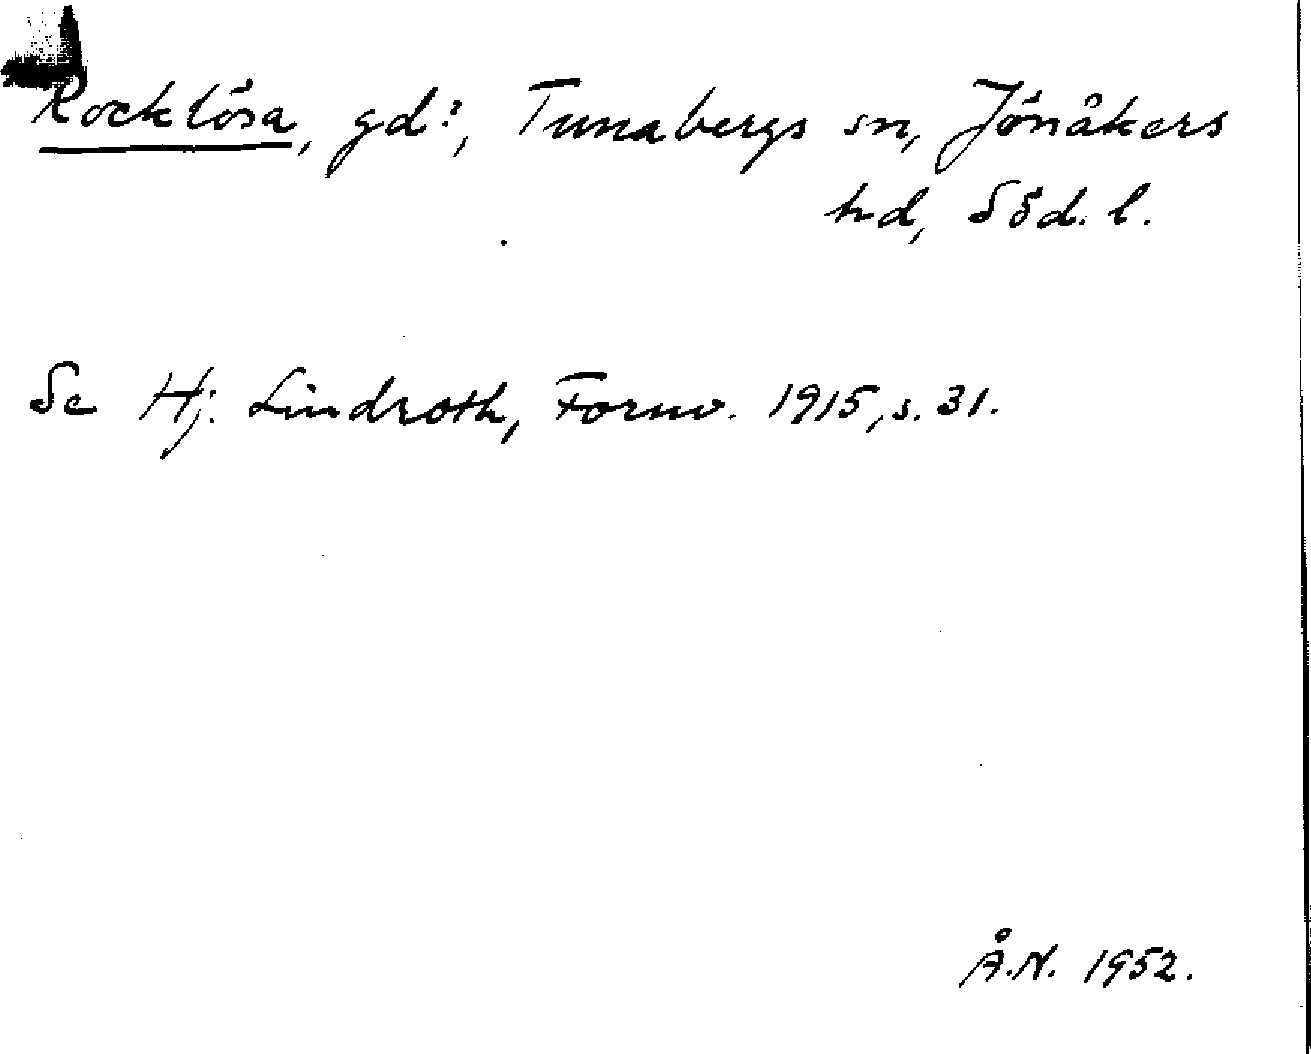 Rocklösa, gd?, Tunabergs sn, Jönåkers
hd, Söd. l.
Se Hj. Lindroth, Fornv. 1915, s. 31.
Å.N. 1952.